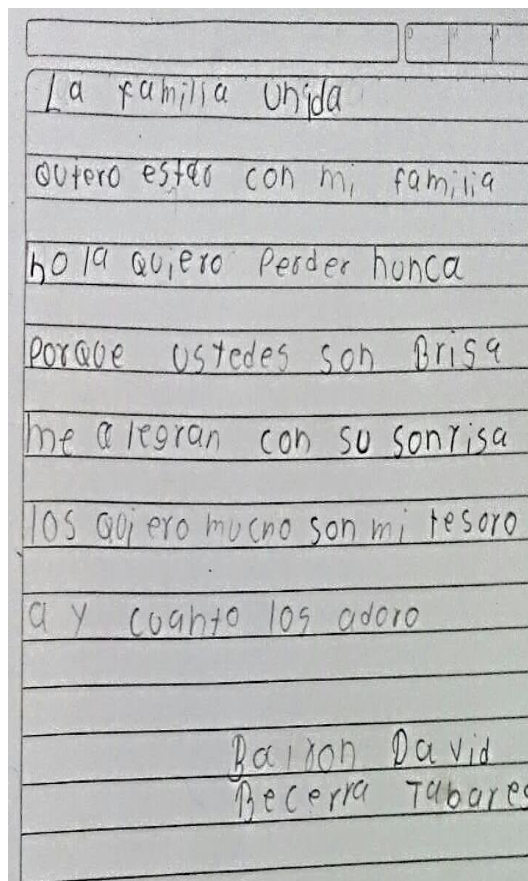 La familia unida
Quiero estar con mi familia
no la Quiero Perder nunca
PorQue ustedes son Brisa
me alegran con su sonrisa
los Quiero mucho son mi tesoro
a y cuanto los adoro
Bairon David
Becerra Tabares